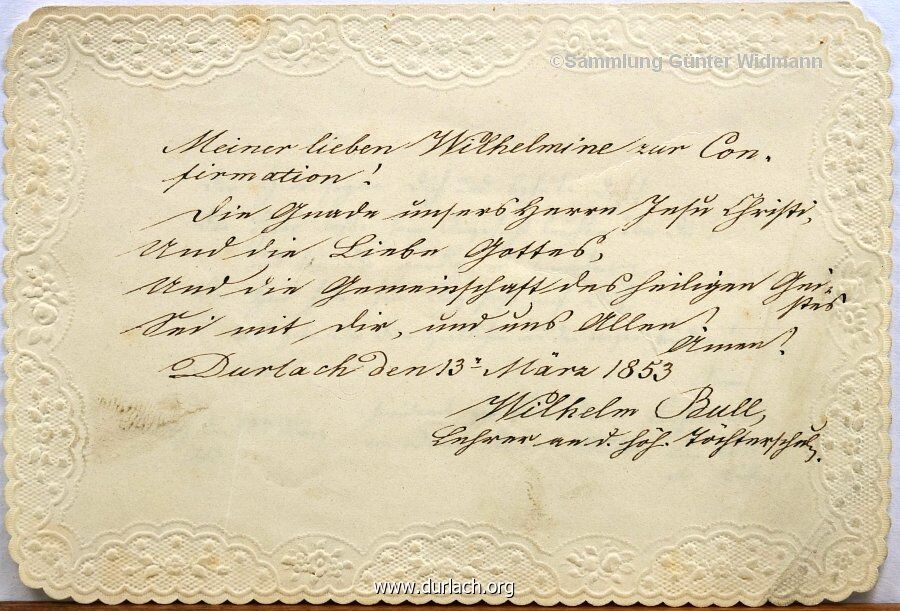 ©Sammlung Günter Widmann
Meiner lieben Wilhelmine zur Con-
firmation!
Die Gnade unsers Herrn Jesu Christi,
Und die Liebe Gottes,
Und die Gemeinschaft des heiligen Gei-
stes
Sei mit dir, und uns Allen!
Amen!
Durlach den 13t März 1853
Wilhelm Bull,
Lehrer an d. höh. Töchterschule.
www.durlach.org